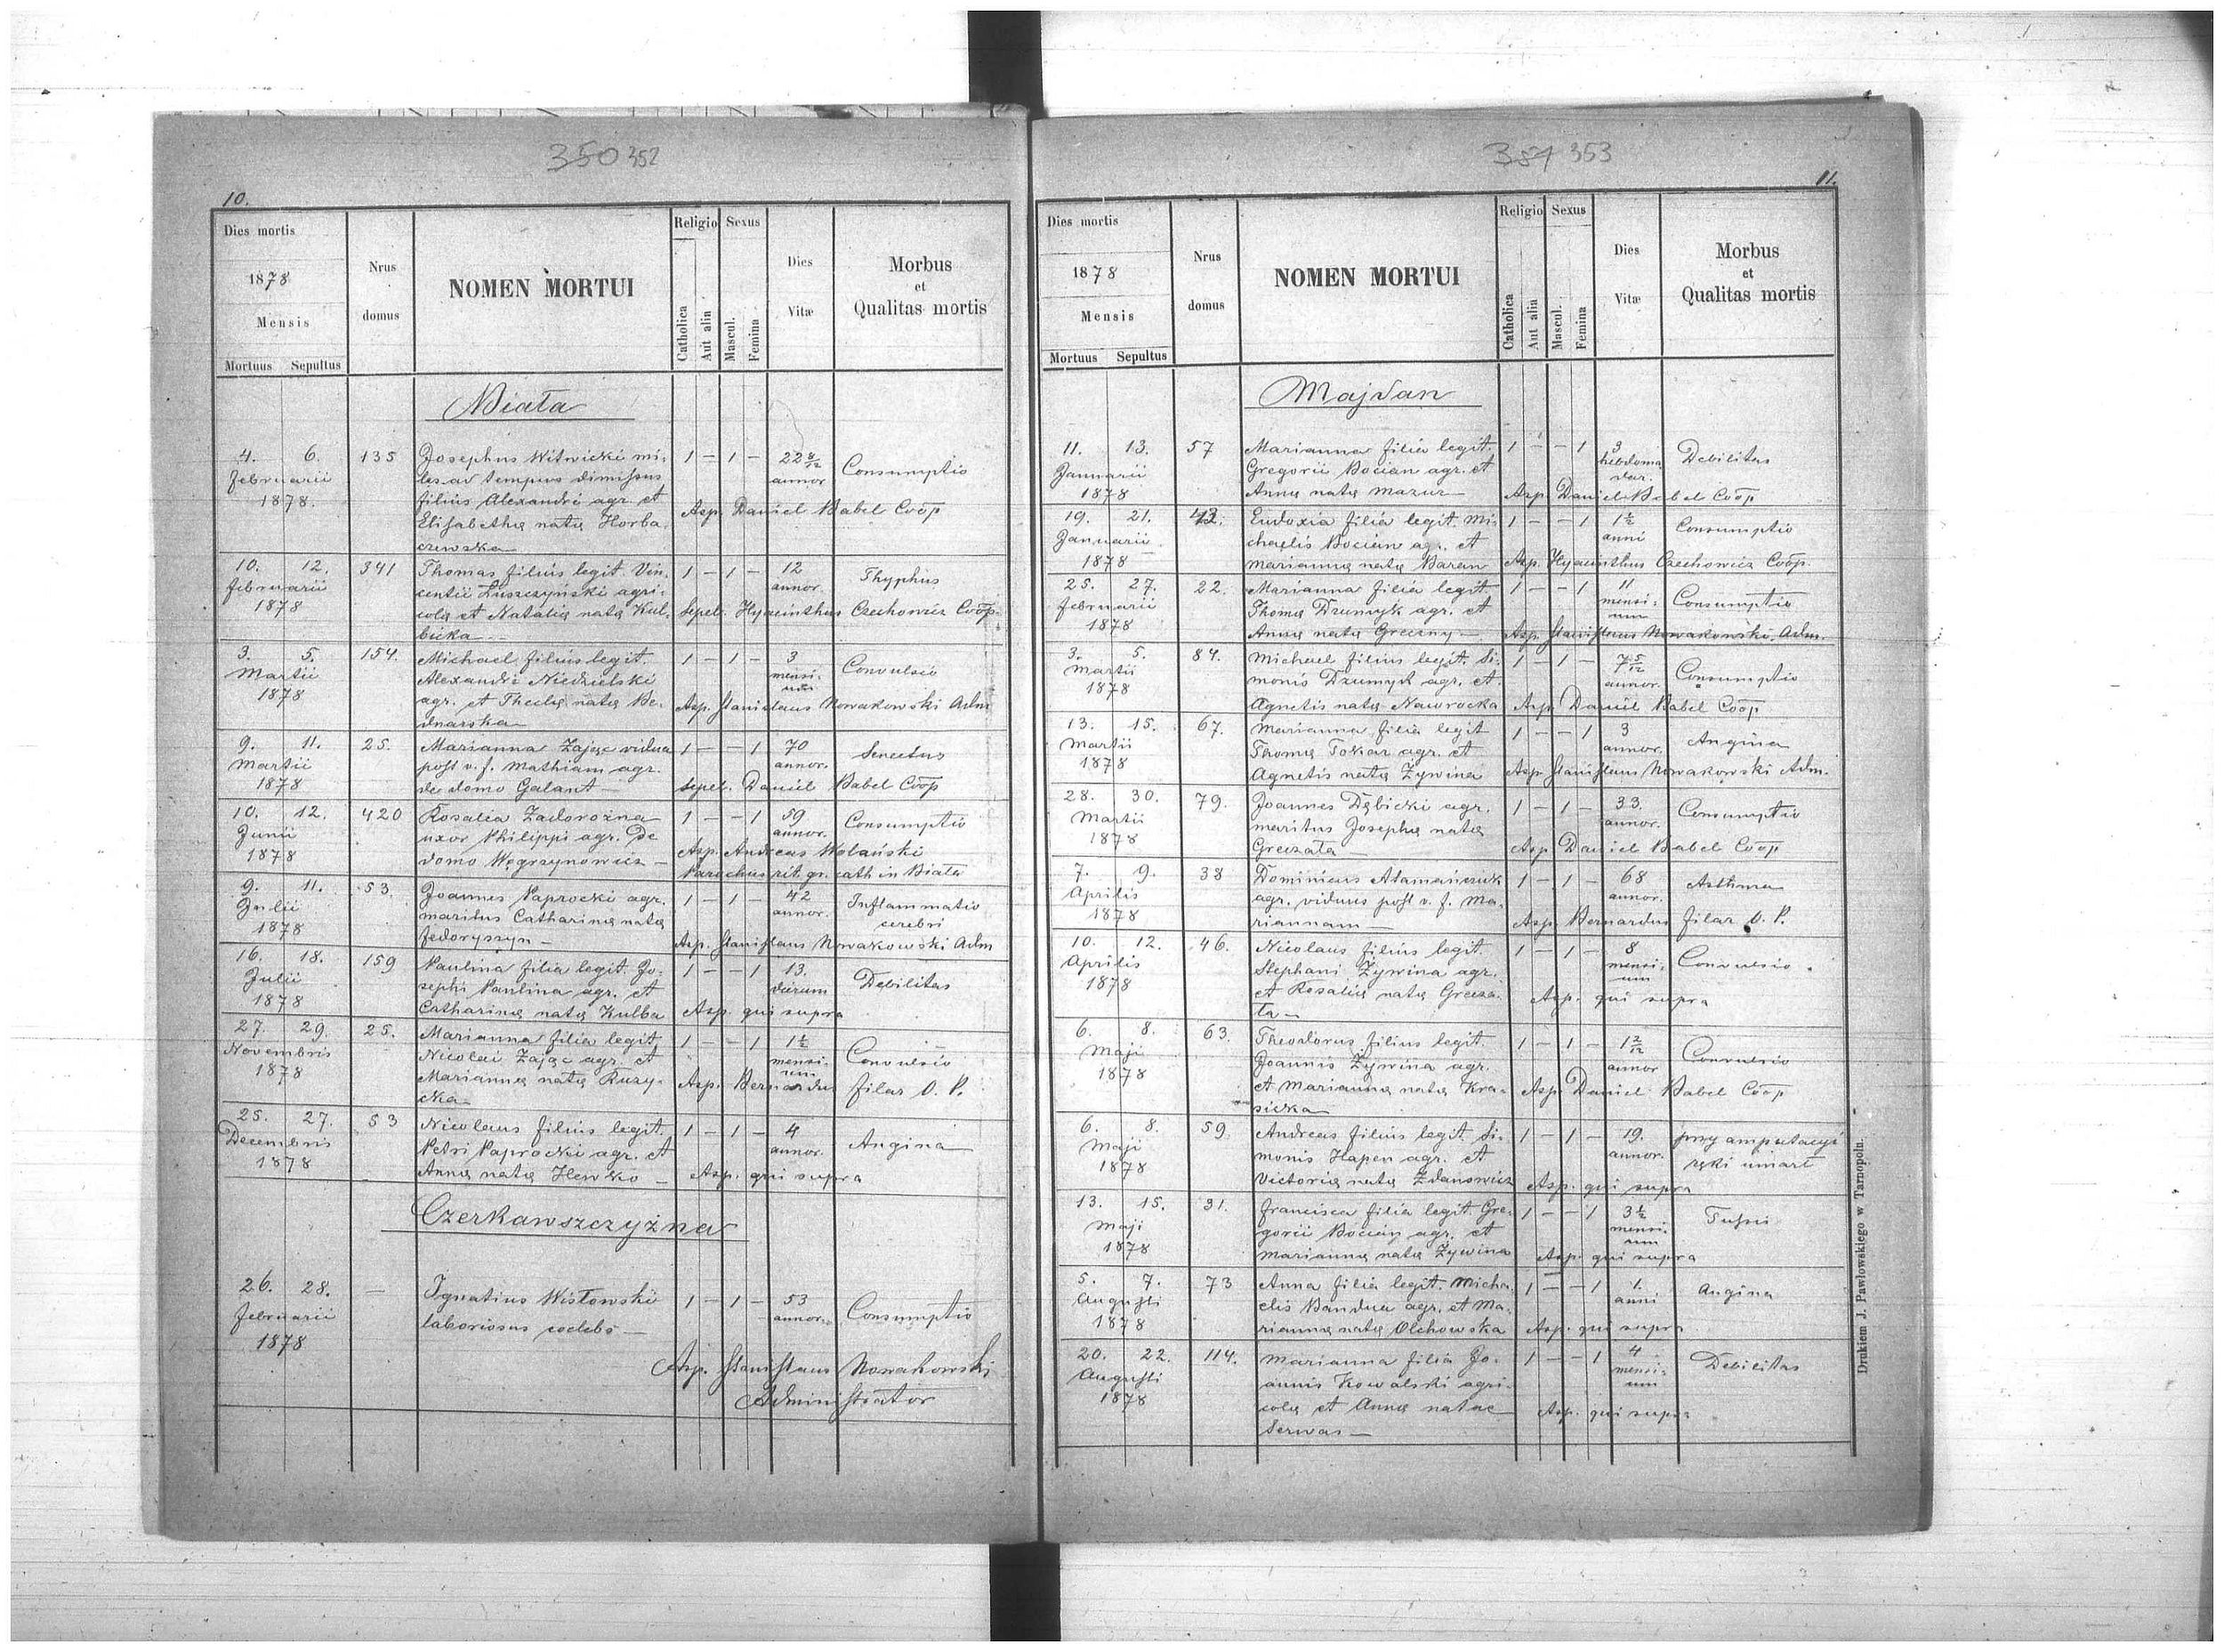 350 352
10.
Dies mortis
1878
Mensis
Mortuus Sepultus
Nrus
domus
NOMEN MORTUI
Religio
Catholica
Aut alia
Sexus
Mascul.
Femina
Dies
Vitæ
Morbus
et
Qualitas mortis
Biała
4. 6. 135 Josephus Witwicki mi- 1 - 1 - 22 8/12 Consumptio
Februarii les ad tempus dimissus annor.
1878. filius Alexandri agr. et
Elisabethę natę Horba- Asp. Daniel Babel Coōp
czewska
10. 12. 341 Thomas filius legit. Vin- 1 - 1 - 12 Thyphus
Februarii centii Łuszczyński agri- annor.
1878 colę et Natalię natę Kul- Sepel. Hyacinthus Czechowicz Coōp.
bicka
3. 5. 154. Michael filius legit. 1 - 1 - 3 Convulsio
Martii Alexandri Niedzielski mensi-
1878 agr. et Theclę natę Be- Asp. Stanislaus Nowakowski Adm
dnarska
9. 11. 25. Marianna Zając vidua 1 - - 1 70 Senectus
Martii post v. f. Mathiam agr. annor.
1878 de domo Galant Sepel. Daniel Babel Coōp
10. 12. 420 Rosalia Zadorożna 1 - - 1 59 Consumptio
Junii uxor Philippi agr. De annor.
1878 domo Węgrzynowicz Asp. Andreas Wolański
Parochus rit. gr. cath in Biała
9. 11. 53. Joannes Paprocki agr. 1 - 1 - 42 Inflammatio
Julii maritus Catharinę natę annor. cerebri
1878 Fedoryszyn Asp. Stanislaus Nowakowski Adm
16. 18. 159 Paulina filia legit. Jo- 1 - - 1 13. Debilitas
Julii sephi Paulina agr. et dierum
1878 Catharinę natę Kulba Asp. qui supra
27. 29. 25. Marianna filia legit. 1 - - 1 1½ Convulsio
Novembris Nicolai Zając agr. et mensi-
1878 Mariannę natę Ruzy- um Asp. Bernardus Filar O. P.
cka
25. 27. 53 Nicolaus filius legit. 1 - 1 - 4 Angina
Decembris Petri Paprocki agr. et annor.
1878 Annę natę Hewko Asp. qui supra
Czerkawszczyzna
26. 28. — Ignatius Wisłowski 1 - 1 - 53 Consumptio
Februarii laboriosus coelebs annor.
1878
Asp. Stanislaus Nowakowski
Administrator
351 353
11.
Dies mortis
1878
Mensis
Mortuus Sepultus
Nrus
domus
NOMEN MORTUI
Religio
Catholica
Aut alia
Sexus
Mascul.
Femina
Dies
Vitæ
Morbus
et
Qualitas mortis
Majdan
11. 13. 57 Marianna filia legit. 1 - - 1 3 Debilitas
Januarii Gregorii Bocian agr. et hebdoma
1878 Annę natę Mazur dar. Asp. Daniel Babel Coōp
19. 21. Eudoxia filia legit. Mi- 1 - - 1 1½ Consumptio
Januarii chaelis Bocian ag. et anni
1878 Mariannę natę Baran Asp. Hyacinthus Czechowicz Coōp.
25. 27. 22. Marianna filia legit. 1 - - 1 11 Consumptio
Februarii Thomę Dzumyk agr. et mensi-
1878 Annę natę Greczny um Asp. Stanislaus Nowakowski. Adm.
3. 5. 84. Michael filius legit. Si- 1 - 1 - 7 5/12 Consumptio
Martii monis Dzumyk agr. et annor.
1878 Agnetis natę Nawrocka Asp. Daniel Babel Coōp
13. 15. 67. Marianna filia legit 1 - - 1 3 Angina
Martii Thomę Tokar agr. et annor.
1878 Agnetis natę Żywina Asp. Stanislaus Nowakowski Adm.
28. 30. 79. Joannes Dębicki agr. 1 - 1 - 33. Consumptio
Martii maritus Josephę natę annor.
1878 Greczała Asp. Daniel Babel Coōp
7. 9. 38 Dominicus Atamańczuk 1 - 1 - 68 Asthma
Aprilis agr. viduus post v. f. Ma- annor.
1878 riannam Asp. Bernardus Filar O. P.
10. 12. 46. Nicolaus filius legit. 1 - 1 - 8 Convulsio.
Aprilis Stephani Żywina agr. mensi-
1878 et Rosalię natę Grecza- um Asp. qui supra
ła
6. 8. 63. Theodorus filius legit. 1 - 1 - 1 2/12 Convulsio
Maji Joannis Żywina agr. annor
1878 et Mariannę natę Kra- Asp. Daniel Babel Coōp
sicka
6. 8. 59. Andreas filius legit. Si- 1 - 1 - 19. przy amputacyi
Maji monis Hapen agr. et annor. ręki umarł
1878 Victorię natę Zdanowicz Asp. qui supra
13. 15. 31. Francisca filia legit. Gre- 1 - - 1 3½ Tussis
Maji gorii Bocian agr. et mensi-
1878 Mariannę natę Żywina um Asp. qui supra
5. 7. 73 Anna filia legit. Micha- 1 - - 1 1. Angina
Augusti elis Bandura agr. et Ma- anni
1878 riannę natę Olchowska Asp. qui supra
20. 22. 114. Marianna filia Jo- 1 - - 1 4 Debilitas
Augusti annis Kowalski agri- mensi-
1878 colę et Annę natae um Asp. qui supra
Serwas
Drukiem J. Pawłowskiego w Tarnopolu.